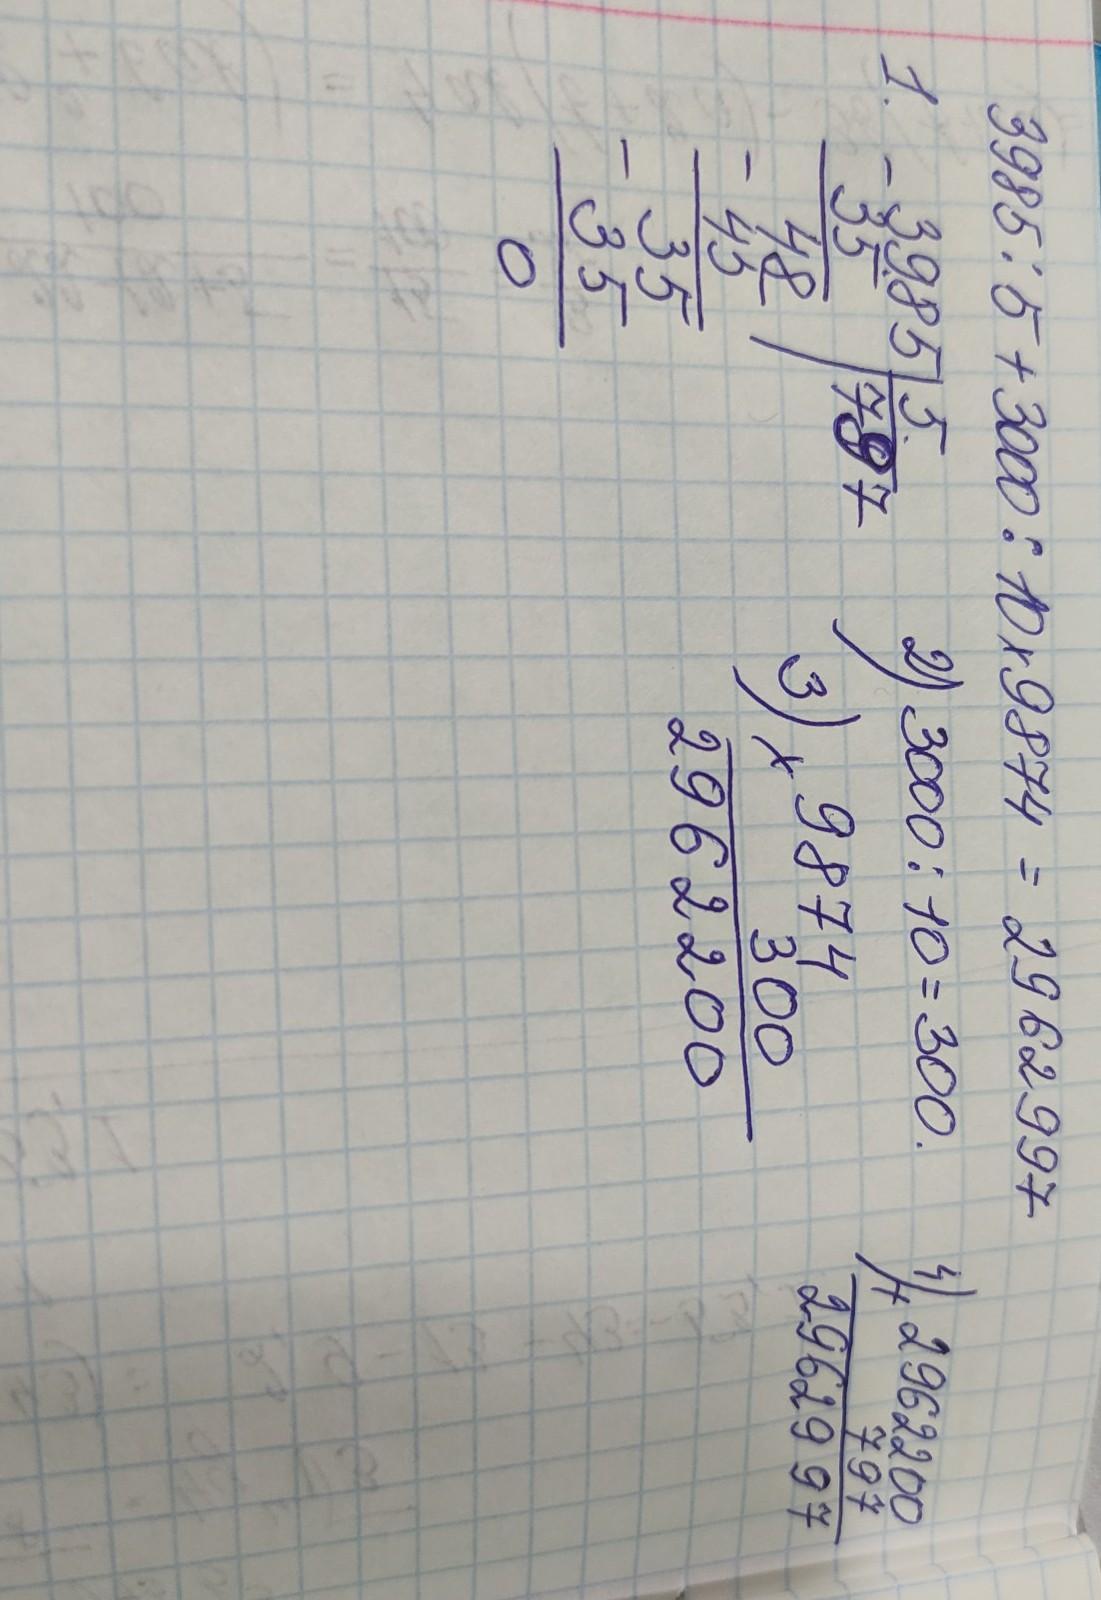 3985 : 5 + 3000 : 10 × 9874 = 2962997
1. - 3985 | 5
35 797
48
- 45
35
- 35
0
2) 3000 : 10 = 300.
3) × 9874
300
2962200
4) + 2962200
797
2962997